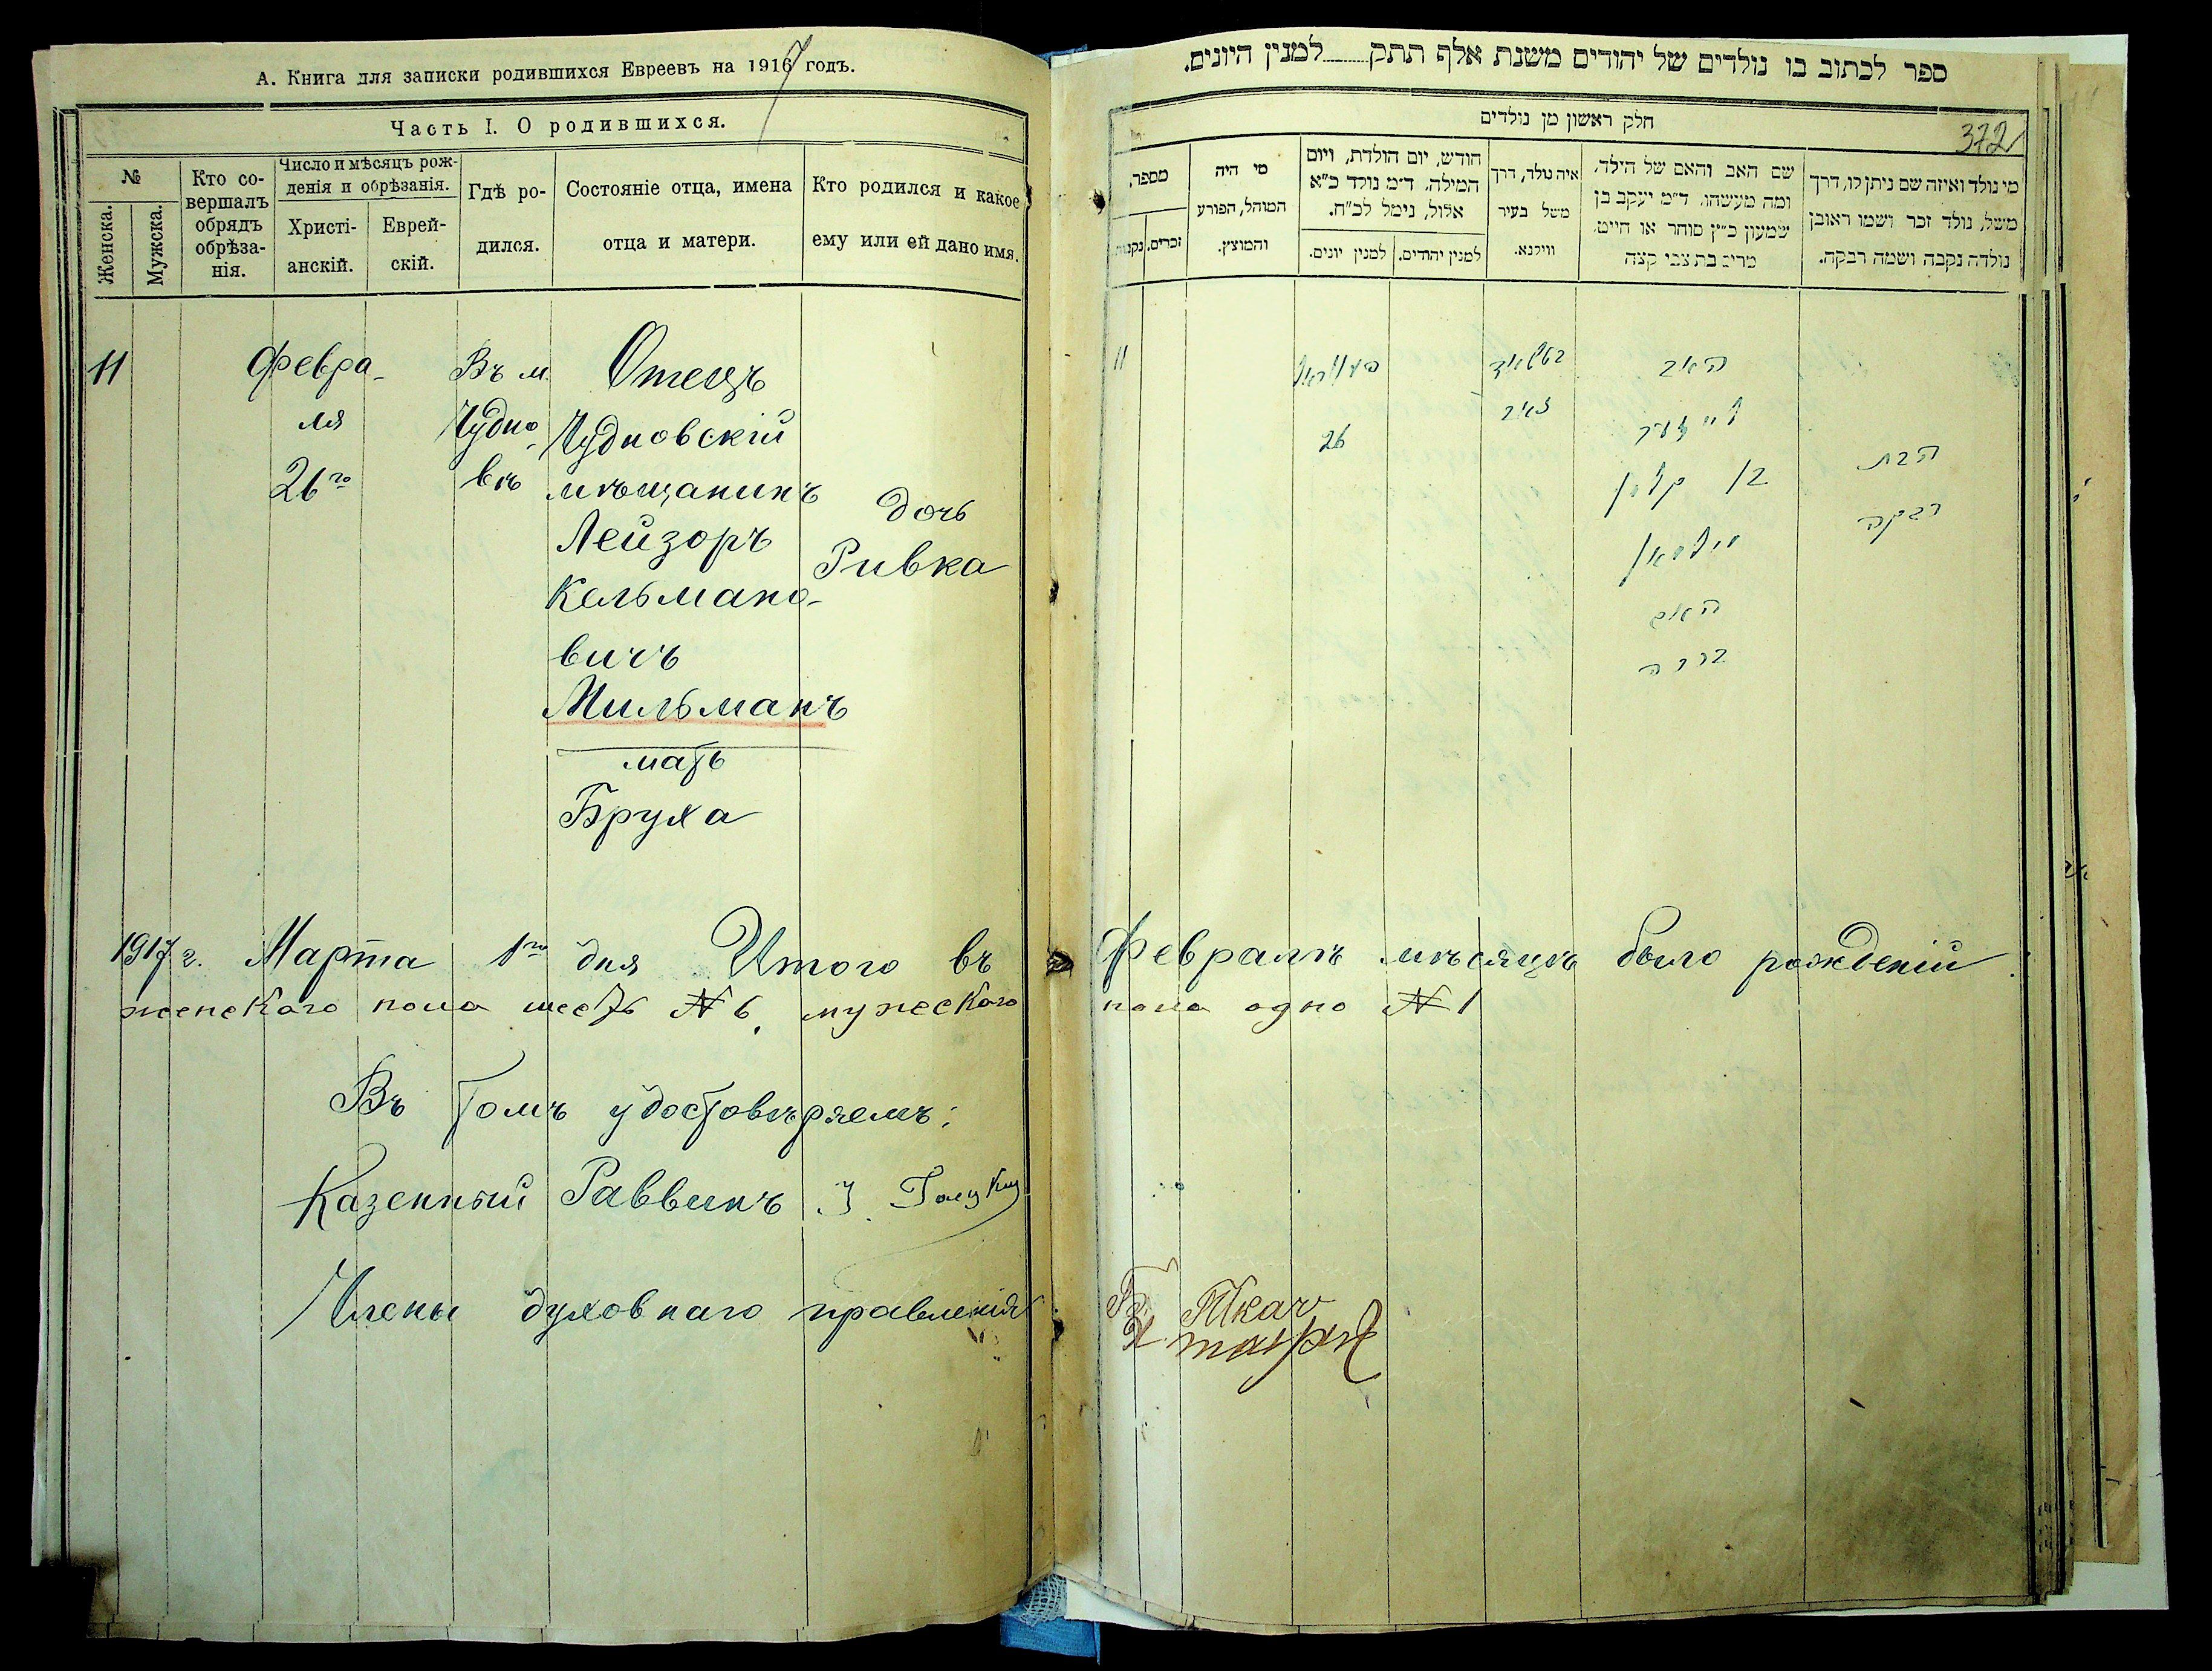 А. Книга для записки родившихся Евреевъ на 1917 годъ.
Часть I. О родившихся.
№
Женска.
Мужска.
Кто со-
вершалъ
обрядъ
обрѣза-
нія.
Число и мѣсяцъ рож-
денія и обрѣзанія.
Христі-
анскій.
Еврей-
скій.
Гдѣ ро-
дился.
Состояніе отца, имена
отца и матери.
Кто родился и какое
ему или ей дано имя.
11
Февра-
ля
26го
Въ м.
Чудно-
вѣ
Отецъ
Чудновскій
мѣщанинъ
Лейзоръ
Кельмано-
вичъ
Мильманъ
мать
Бруха
Дочь
Ривка
1917 г. Марта 1го дня Итого въ
женскаго пола шесть № 6, мужескаго
Въ томъ удостовѣряемъ:
Казенный Раввинъ
Члены духовнаго правленія
ספר לכתוב בו נולדים של יהודים משנת אלף תתק למנין היונים.
חלק ראשון מן נולדים
372
מי נולד ואיזה שם ניתן לו, דרך
משל, נולד זכר ושמו ראובן
נולדה נקבה ושמה רבקה.
שם האב והאם של הילד,
ומה מעשהו. ד״מ יעקב בן
שמעון כ״ץ סוחר או חייט,
מרים בת צבי קצה
איה נולד, דרך
משל בעיר
ווילנא.
חודש, יום הולדת, ויום
המילה. ד״מ נולד כ״א
אלול, נימל לכ״ח.
למנין יהודים.
למנין יונים.
מי היה
המוהל, הפורע
והמוצץ.
מספר,
זכרים.
נקבות
הבת
רבקה
האב
לייזער
בן קלמן
מילמאן
האם
ברכה
פעווראל
26
11
Февралѣ мѣсяцѣ было рожденій
пола одно № 1
Ткач